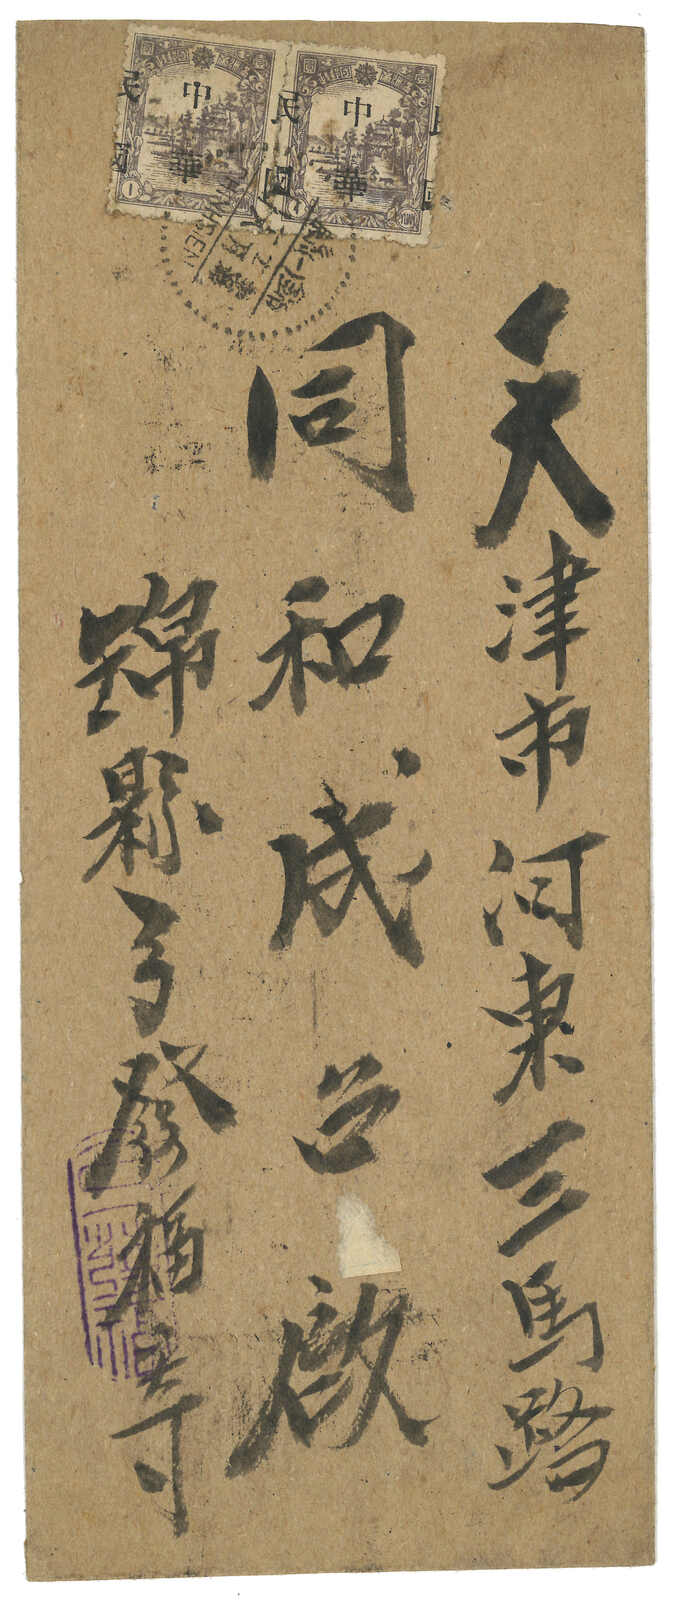 天津市河東三馬路
同和成台啟
錦縣
發福寺
中華
民國
中華
民國
1
CHINHSIEN